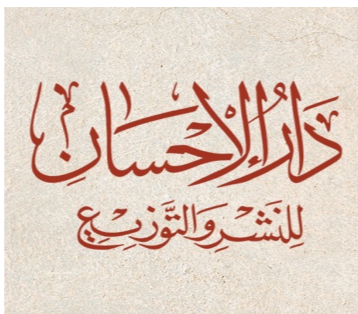 دَارُ الإِحسَانِ
لِلنَشْرِ وَالتَّوزِيعِ